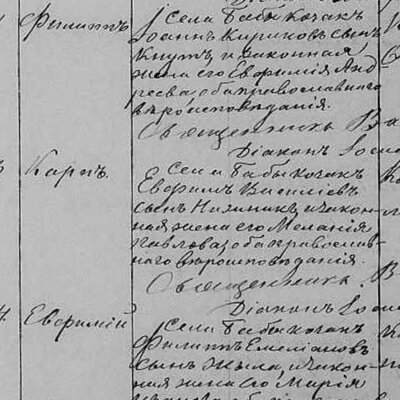 Филиппъ
Села Бабы Качакъ
Іоаннъ Кириковъ сынъ
Кнутъ и законная
жена его Евфимія Анд
реева оба православнаго
вѣроисповѣданія.
Священникъ
Діаконъ
Карпъ.
Села Бабыкочакъ
Евфимъ Василіевъ
сынъ и закон
ная жена его Меланія
Павлова, оба православ-
наго вѣроисповѣданія.
Священникъ
Діаконъ
Евфимій
Села Бабыкочакъ
Филиппъ Емеліановъ
сынъ Жила, и закон-
ная жена его Марія